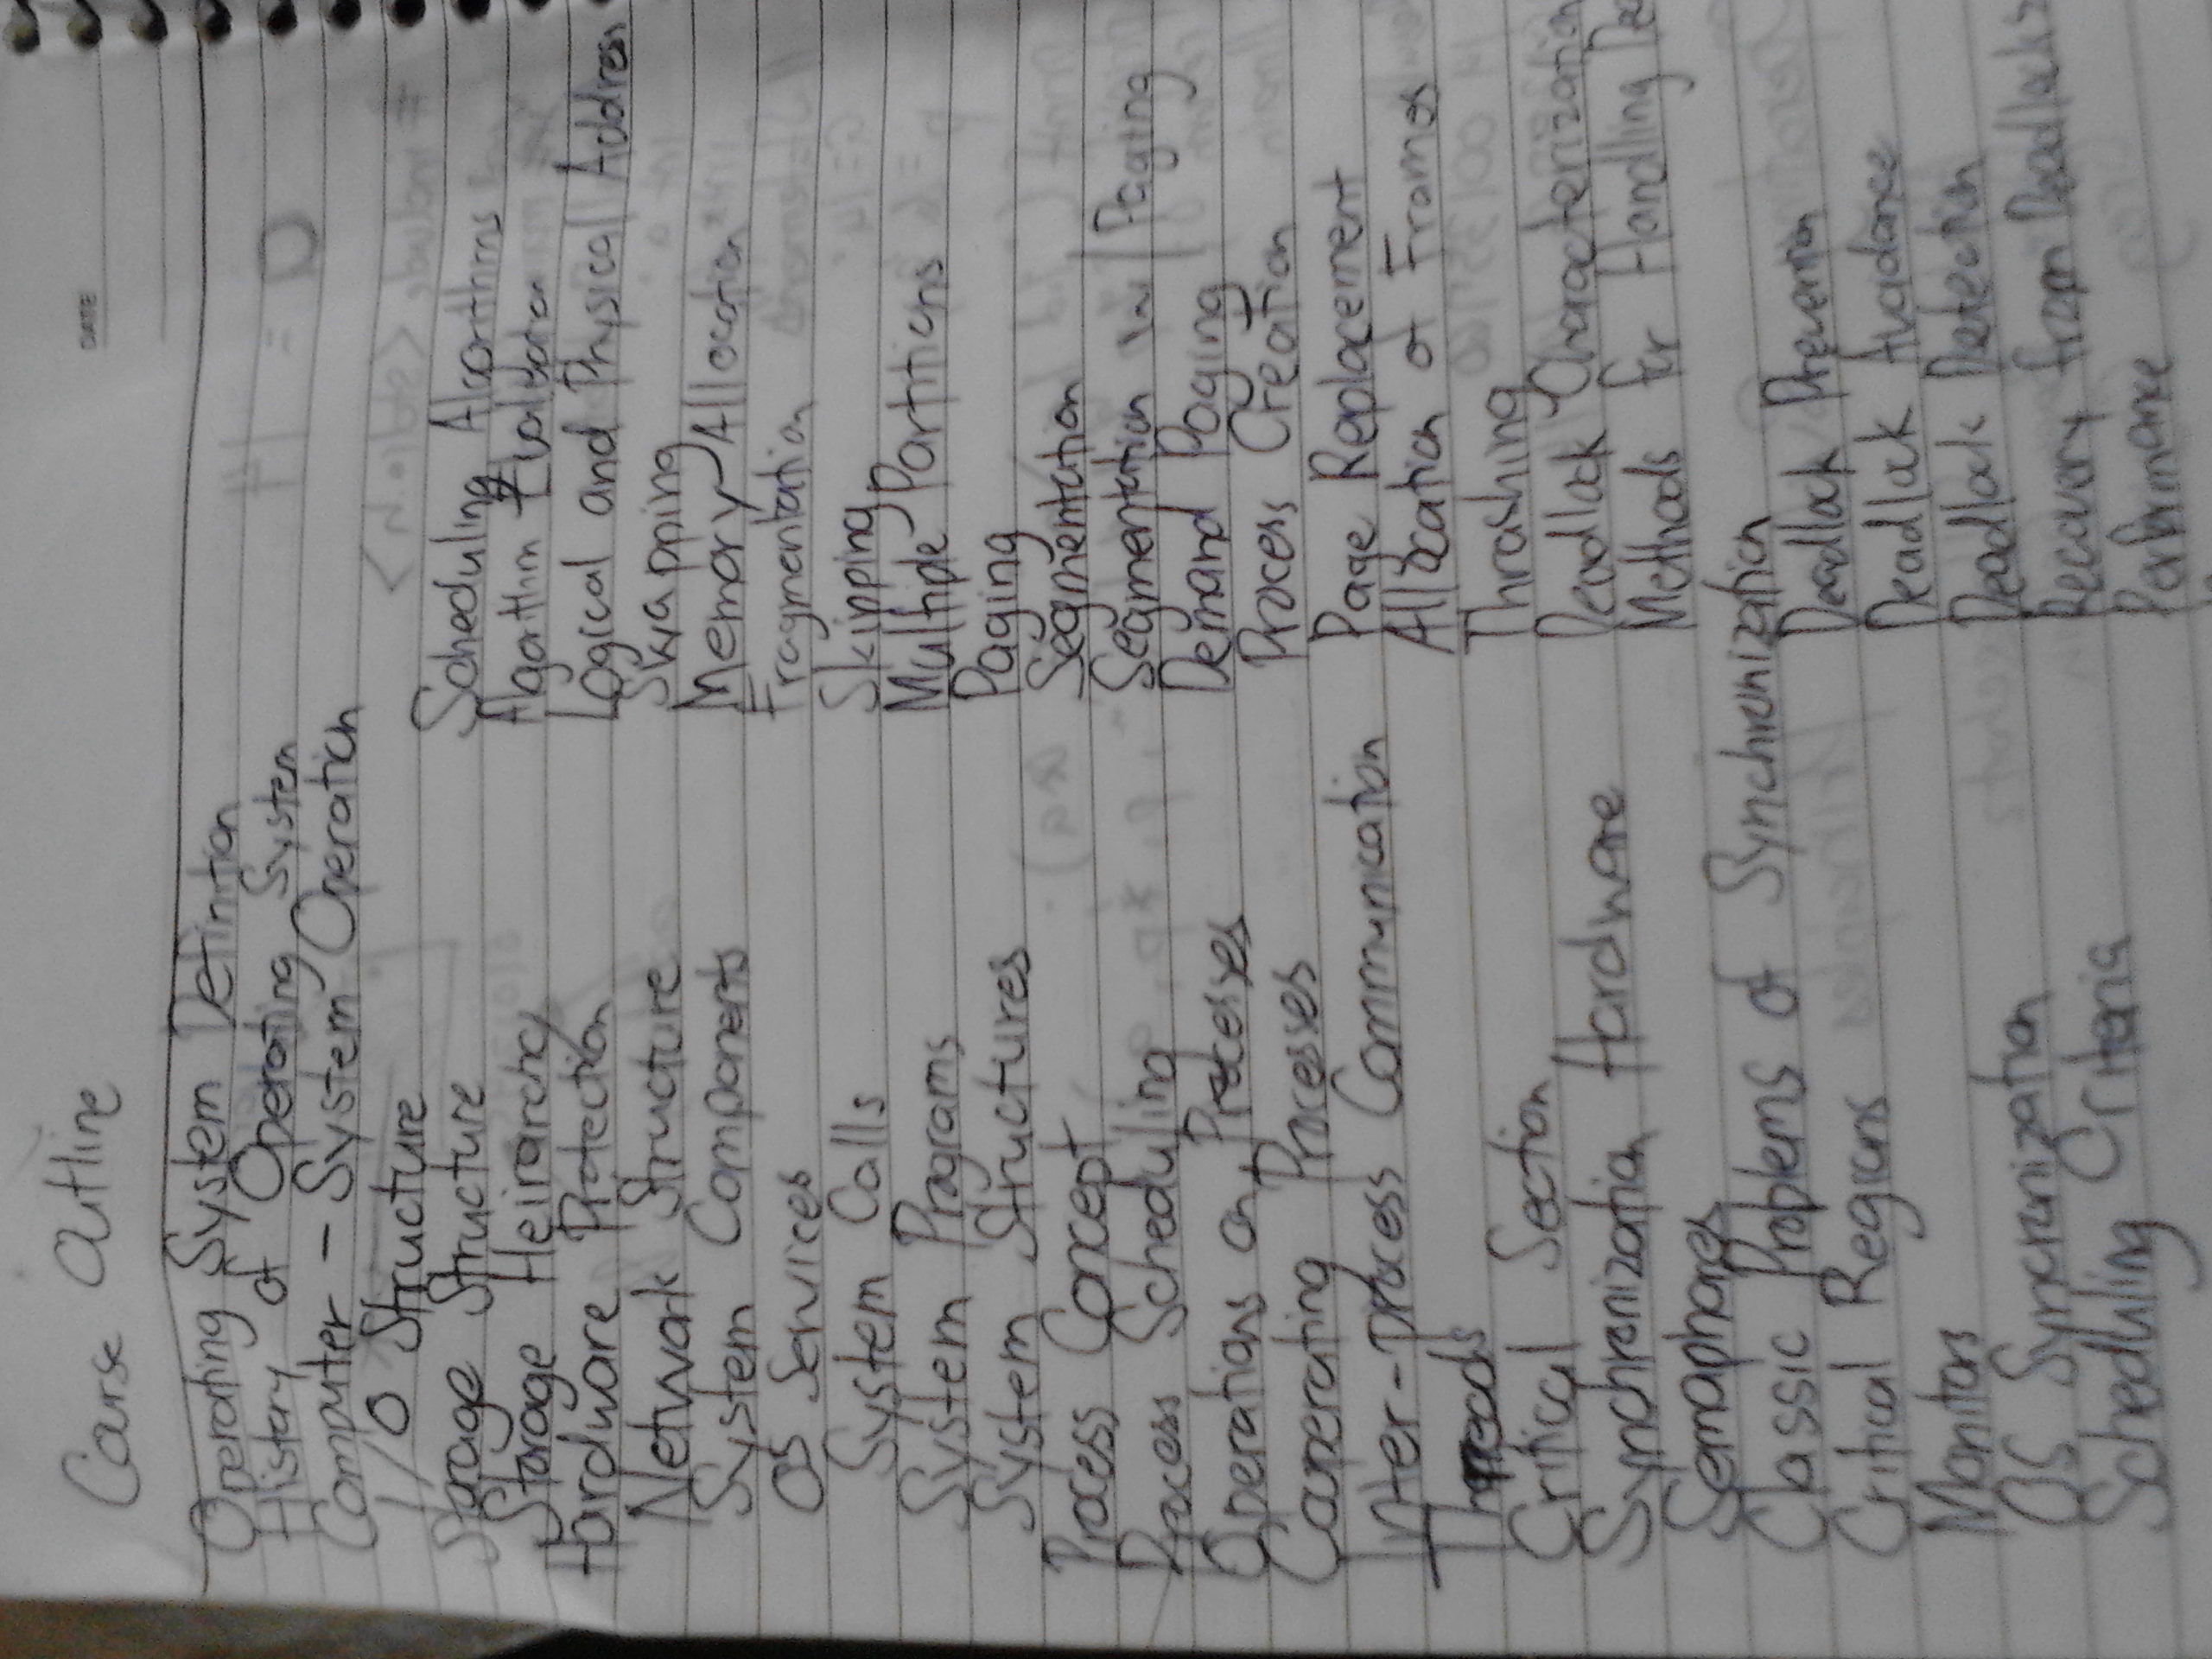 Course Outline
DATE
Operating System Definition
History of Operating System
Computer - System Operation
I/O Structure
Storage Structure
Storage Heirarchy
Hardware Protection
Network Structure
System Components
OS Services
System Calls
System Programs
System Structures
Process Concept
Process Scheduling
Operations on Processes
Cooperating Processes
Inter-process Communication
Threads
Critical Section
Synchronization Hardware
Semaphores
Classic Problems of Synchronization
Critical Regions
Monitors
OS Syncronization
Scheduling Criteria
Scheduling Algorithms
Algorithm Evaluation
Logical and Physical Address
Swapping
Memory Allocation
Fragmentation
Skipping
Multiple Partitions
Paging
Segmentation
Segmentation w/ Paging
Demand Paging
Process Creation
Page Replacement
Allocation of Frames
Thrashing
Deadlock Characterization
Methods for Handling Dea
Deadlock Prevention
Deadlock Avoidance
Deadlock Detection
Recovery from Deadlocks
Performance